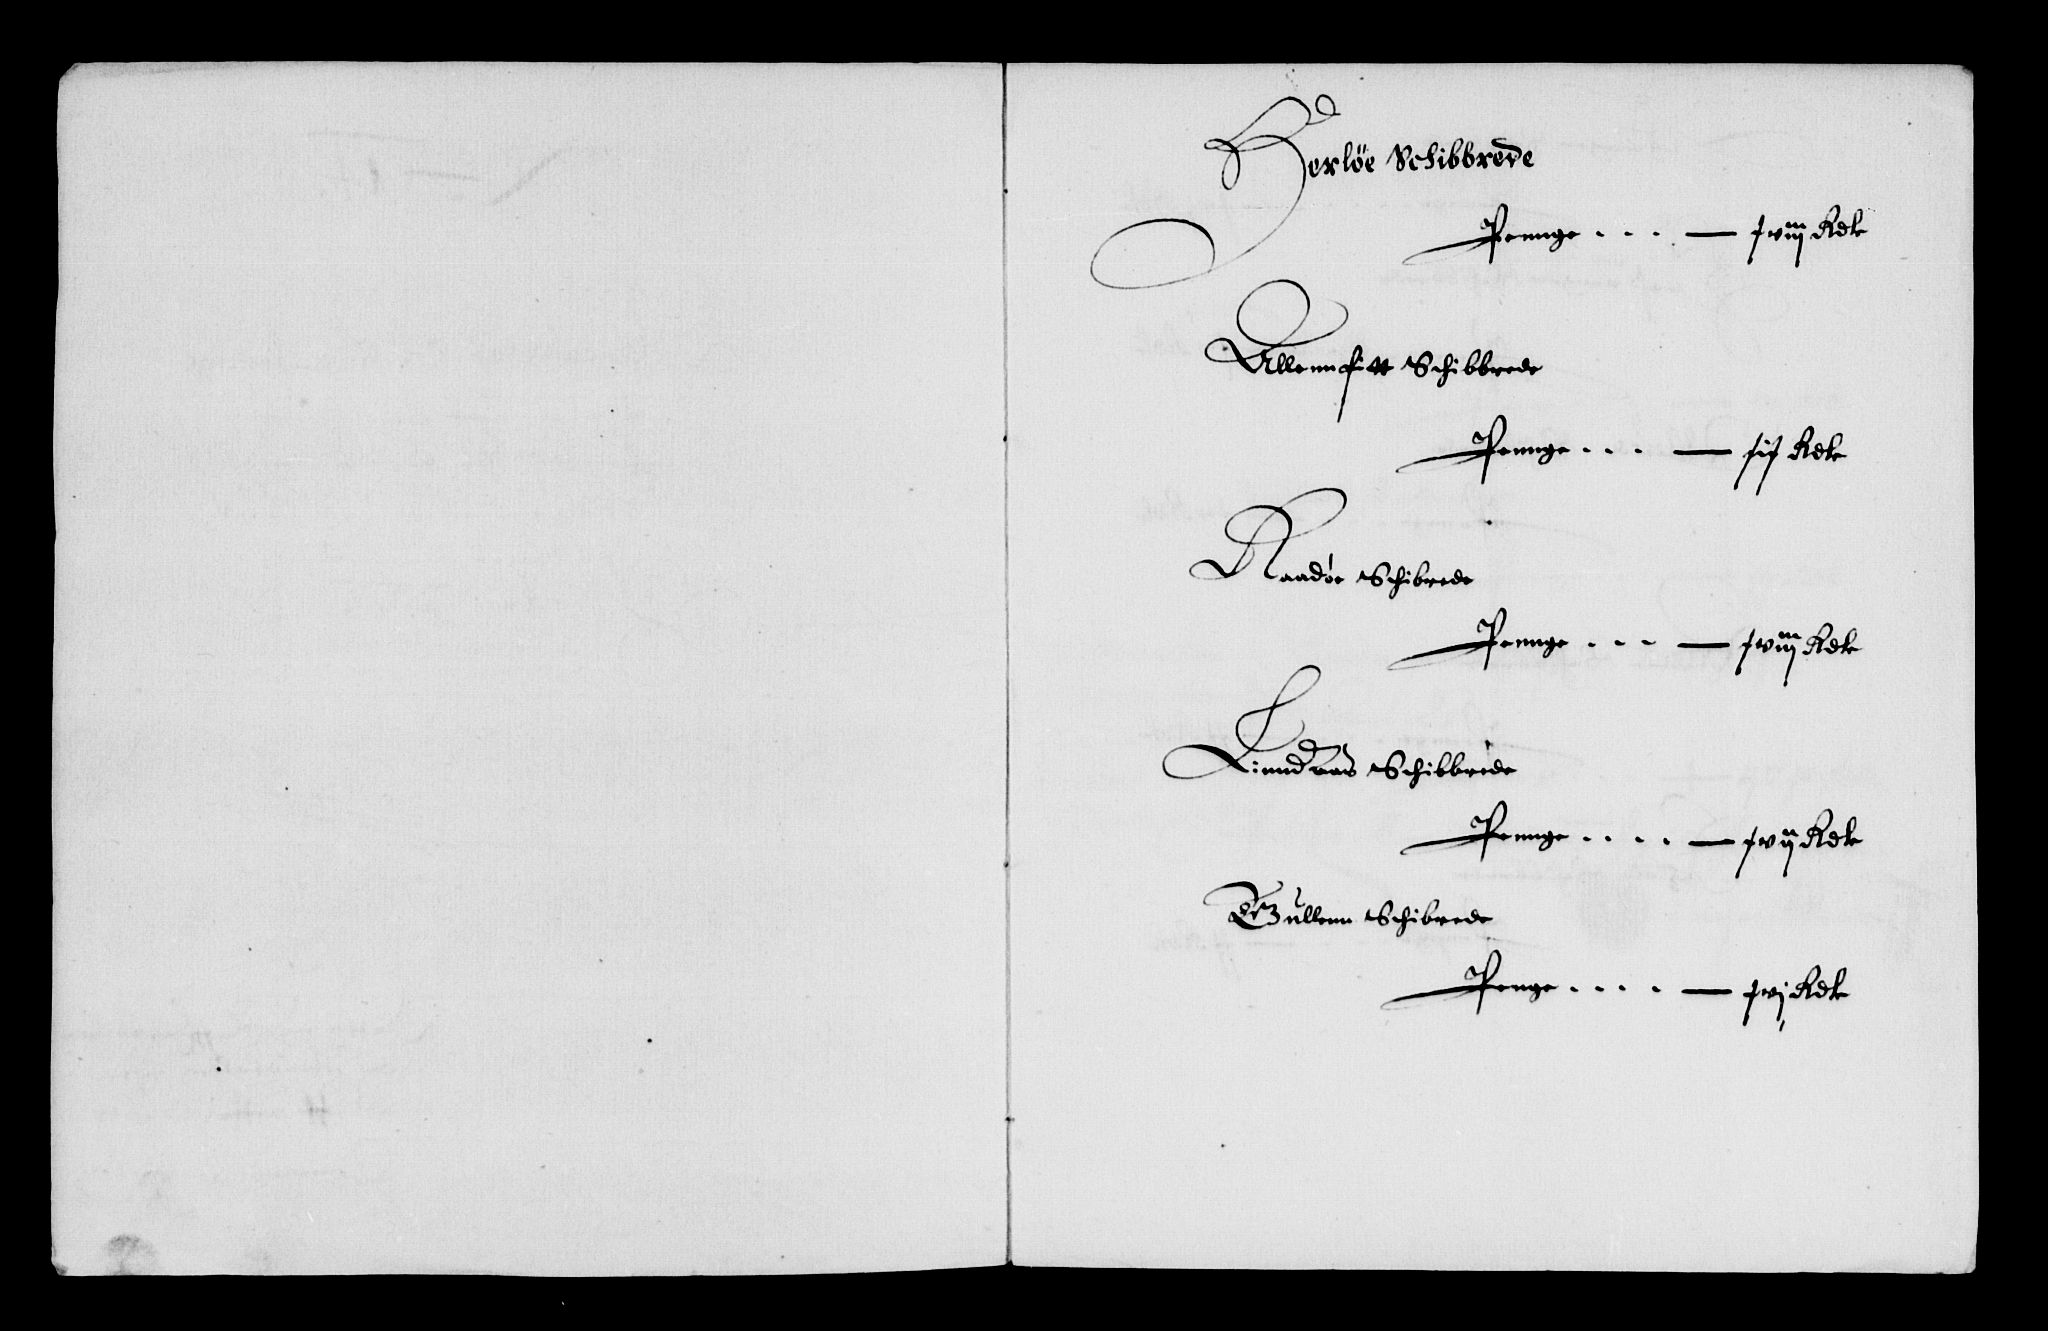 Herløe Schibbrede
Pennge . . . — xviij Rdr
Allennfitt Schibbrede
Pennge . . . — xix Rdr
Raadøe Schibrede
Pennge . . . — xviij Rdr
Linndaas Schibbrede
Pennge . . . . — xvij Rdr
Gullenn Schibrede
Penge . . . . — xvj Rdr